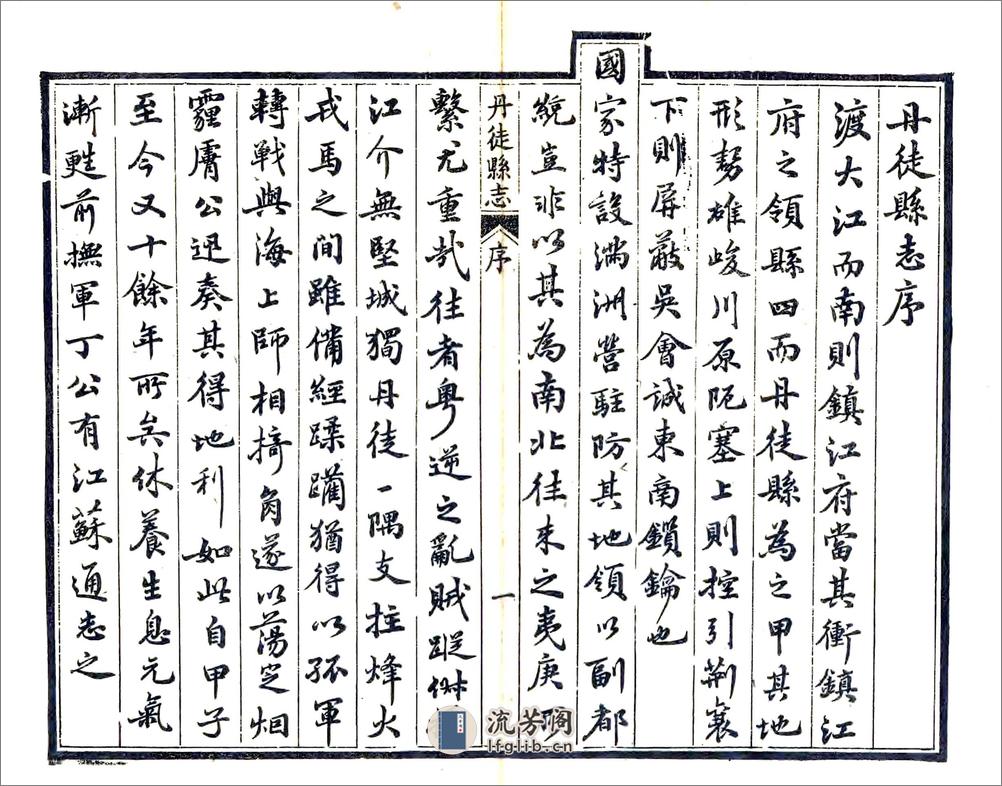 丹徒縣志序
渡大江而南則鎮江府當其衝鎮江
府之領縣四而丹徒縣為之甲其地
形勢雄峻川原阨塞上則控引荊襄
下則屏蔽吳會誠東南鎖鑰也
國家特設滿洲營駐防其地領以副都
統豈非以其為南北往来之夷庚
丹徒縣志
序
一
繫尤重哉往者粵逆之亂賊蹤
江介無堅城獨丹徒一隅支拄烽火
戎馬之間雖備經蹂躪猶得以孤軍
轉戰與海上師相掎角遂以蕩定
霾膚公迅奏其得地利如此自甲子
至今又十餘年所矣休養生息元氣
漸甦前撫軍丁公有江蘇通志之
流芳阁
lfglib.cn